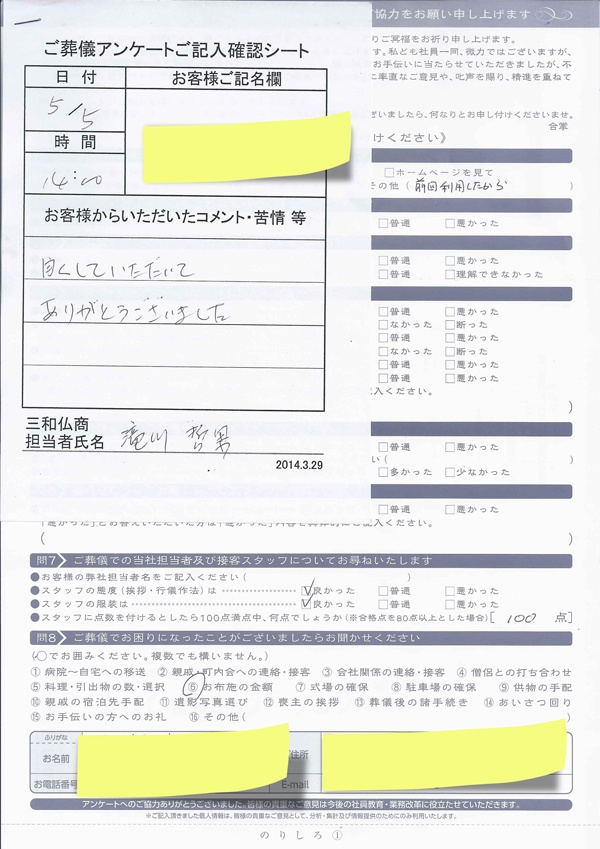 ご協力をお願い申し上げます
ご葬儀アンケートご記入確認シート
日 付
お客様ご記名欄
5/5
時 間
14:00
お客様からいただいたコメント・苦情 等
良くしていただいて
ありがとうございました
三和仏商
担当者氏名 滝川 哲男
2014.3.29
りご冥福をお祈り申し上げます。
す。私ども社員一同、微力ではございますが、
お手伝いに当たらせていただきましたが、不
に率直なご意見や、叱声を賜り、精進を重ねて
ざいましたら、何なりとお申し付けくださいませ。
合掌
けください》
□ホームページを見て
その他（前回利用したから
□普通 □悪かった
□普通 □悪かった
□普通 □理解できなかった
□普通 □悪かった
□なかった □断った
□普通 □悪かった
□なかった □断った
□普通 □悪かった
□普通 □悪かった
入ください。
）
□普通 □悪かった
い（ ）
□多かった □少なかった
□普通 □悪かった
（ ）
問7 ご葬儀での当社担当者及び接客スタッフについてお尋ねいたします
●お客様の弊社担当者名をご記入ください（ ）
●スタッフの態度（挨拶・行儀作法）は □良かった □普通 □悪かった
●スタッフの服装は □良かった □普通 □悪かった
●スタッフに点数を付けるとしたら100点満点中、何点でしょうか（※合格点を80点以上とした場合）[ 100 点]
問8 ご葬儀でお困りになったことがございましたらお聞かせください
（○でお囲みください。複数でも構いません。）
①病院〜自宅への移送 ②親戚・町内会への連絡・接客 ③会社関係の連絡・接客 ④僧侶との打ち合わせ
⑤料理・引出物の数・選択 ⑥お布施の金額 ⑦式場の確保 ⑧駐車場の確保 ⑨供物の手配
⑩親戚の宿泊先手配 ⑪遺影写真選び ⑫喪主の挨拶 ⑬葬儀後の諸手続き ⑭あいさつ回り
⑮お手伝いの方へのお礼 ⑯その他（ ）
ふりがな
お名前
住所
お電話番号
E-mail
アンケートへのご協力ありがとうございました。皆様の貴重なご意見は今後の社員教育・業務改革に役立たせていただきます。
※ご記入頂きました個人情報は、皆様の貴重なご意見として、分析・集計及び情報提供のためにのみ利用いたします。
のりしろ①